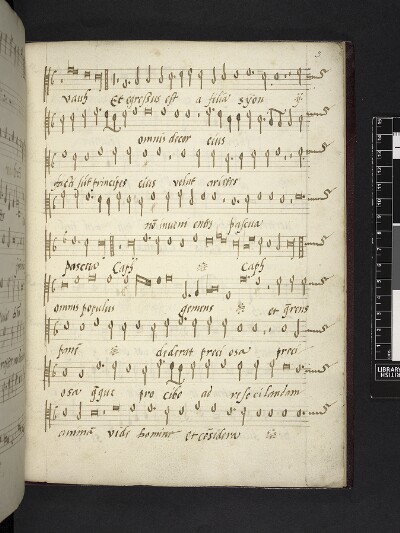 3
vauh Et egressus est a filia syon ij.
omnis decor eius
facti sūt principes eius velut arietes
nō inveni entes pascua
pascua Caph Caph
omnis populus gemens et q̄rens
panē dederūt preci osa preci
osa q̄que pro cibo ad refocilandam
animā vide domine et cōsidera
LIBRARY